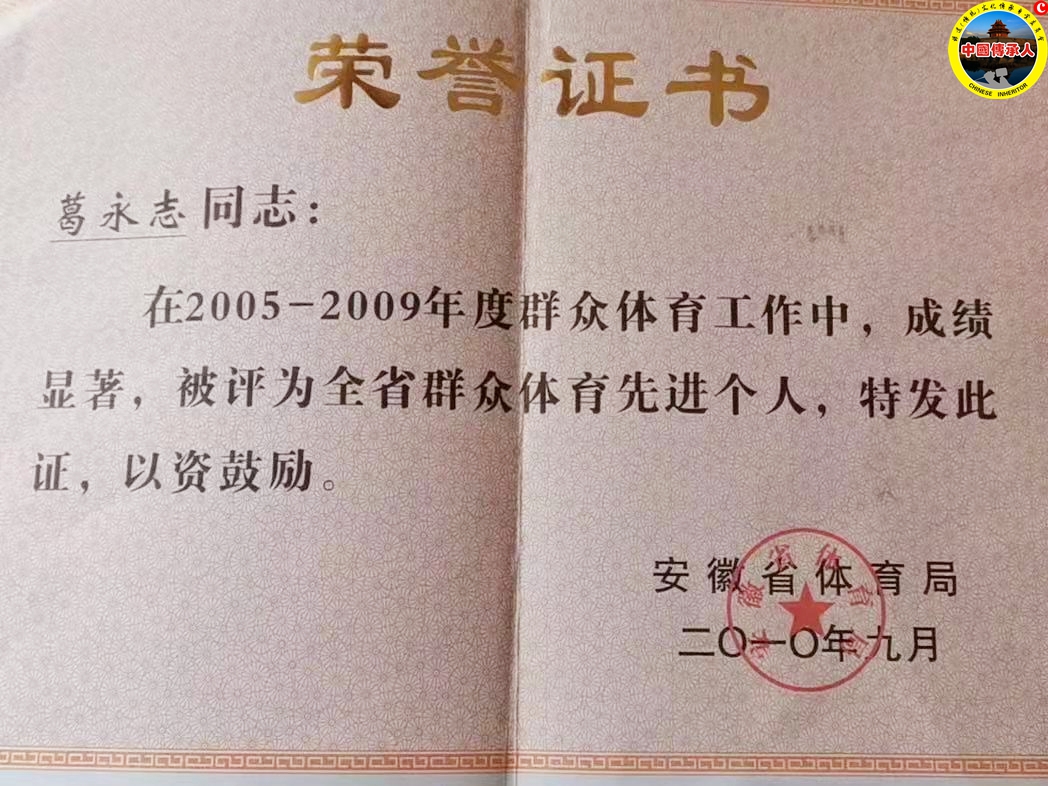 荣誉证书
葛永志同志：
在2005-2009年度群众体育工作中，成绩
显著，被评为全省群众体育先进个人，特发此
证，以资鼓励。
安徽省体育局
二〇一〇年九月
安徽省体育局
中國傳承人
CHINESE INHERITOR
C